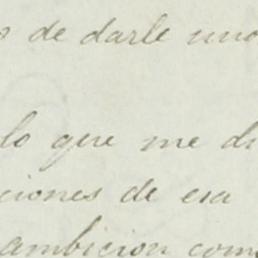 s de darle uno
lo que me di
ciones de esa
ambicion como